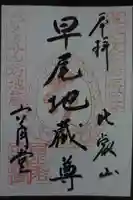 奉拝
比叡山
早尾地蔵尊
六角堂